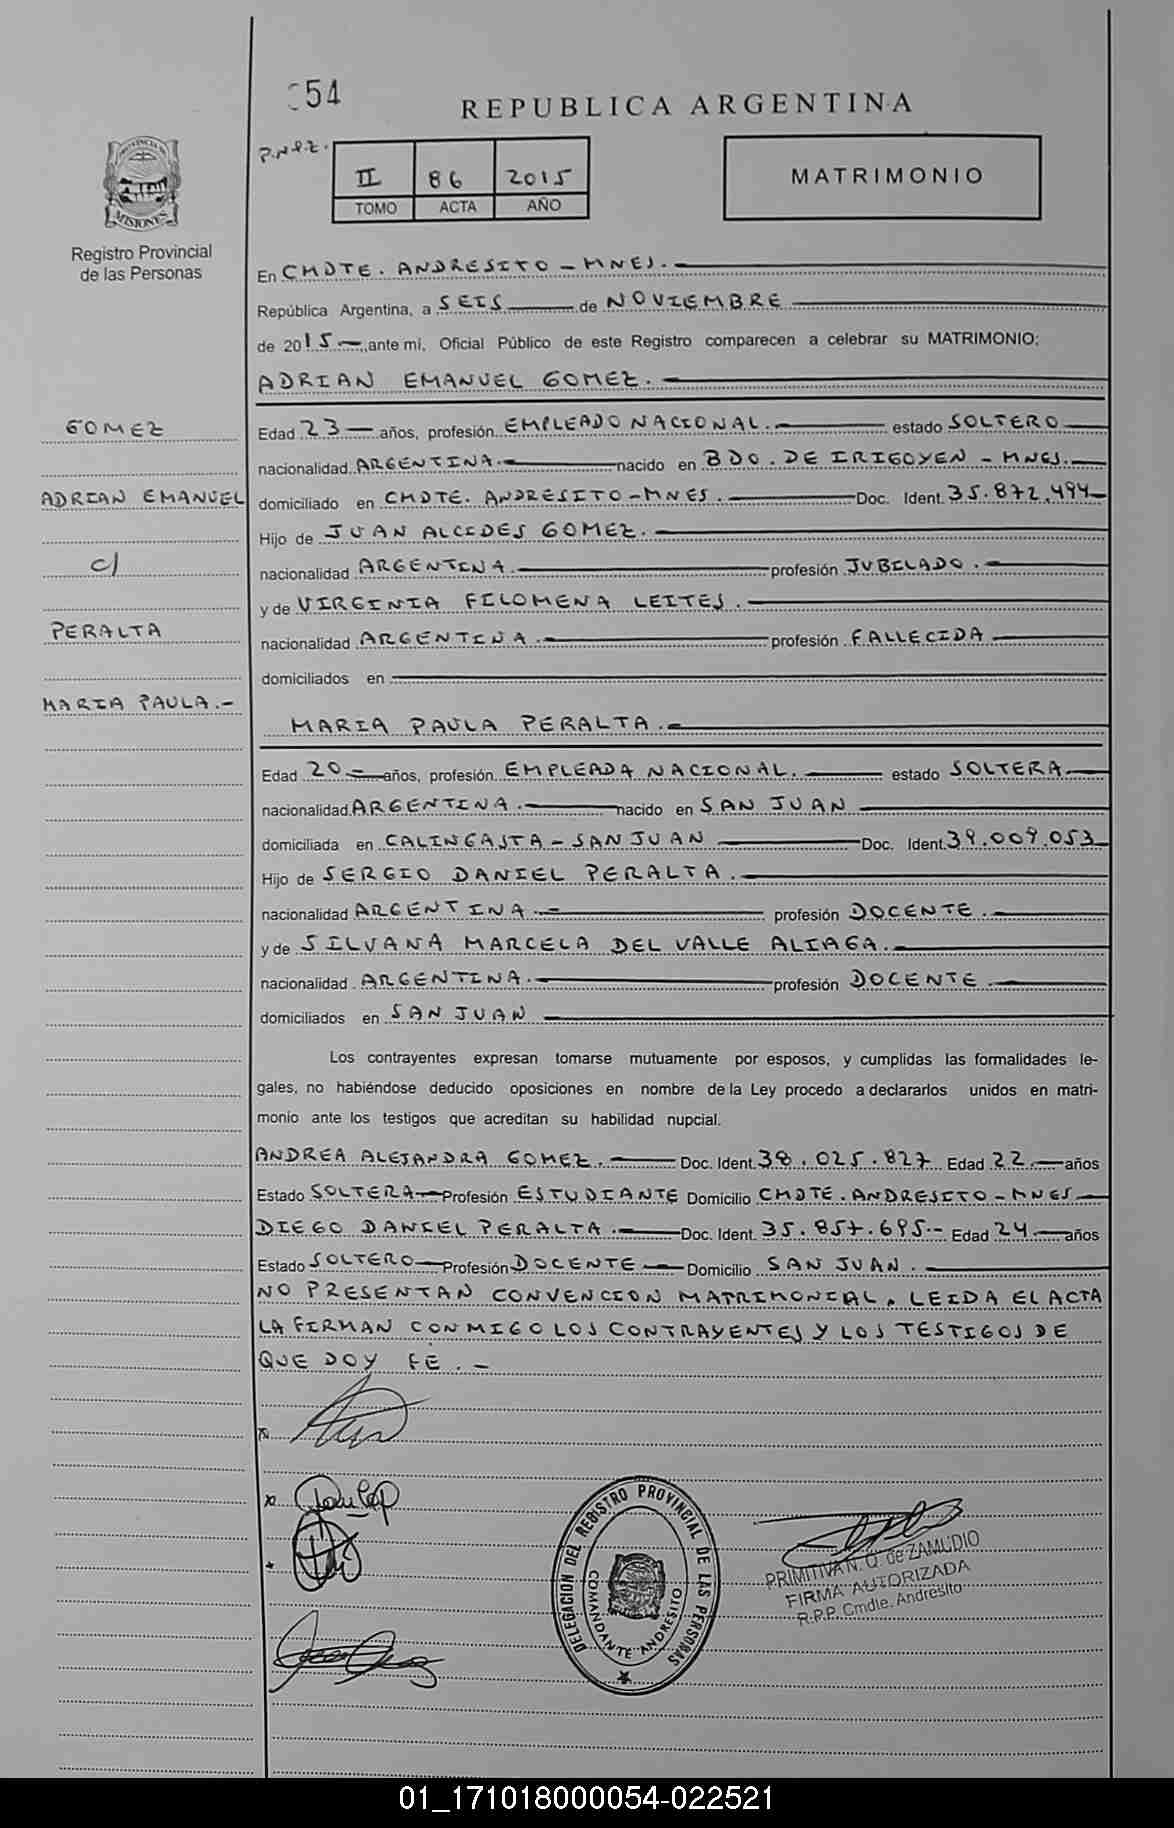 054
REPUBLICA ARGENTINA
P.N.P.Z.
II 86 2015
TOMO ACTA AÑO
MATRIMONIO
PROVINCIA DE
MISIONES
Registro Provincial
de las Personas
En CMDTE. ANDRESITO - MNES.
República Argentina, a SEIS de NOVIEMBRE
de 2015, ante mí, Oficial Público de este Registro comparecen a celebrar su MATRIMONIO;
ADRIAN EMANUEL GOMEZ.
GOMEZ
ADRIAN EMANUEL
c/
PERALTA
MARIA PAULA.-
Edad 23 años, profesión EMPLEADO NACIONAL. estado SOLTERO
nacionalidad ARGENTINA. nacido en BDO. DE IRIGOYEN - MNES.
domiciliado en CMDTE. ANDRESITO - MNES. Doc. Ident. 35.872.494
Hijo de JUAN ALCIDES GOMEZ.
nacionalidad ARGENTINA. profesión JUBILADO.
y de VIRGINIA FILOMENA LEITES.
nacionalidad ARGENTINA. profesión FALLECIDA
domiciliados en
MARIA PAULA PERALTA.
Edad 20 años, profesión EMPLEADA NACIONAL. estado SOLTERA
nacionalidad ARGENTINA. nacido en SAN JUAN
domiciliada en CALINGASTA - SAN JUAN Doc. Ident. 39.009.053
Hijo de SERGIO DANIEL PERALTA.
nacionalidad ARGENTINA. profesión DOCENTE.
y de SILVANA MARCELA DEL VALLE ALIAGA.
nacionalidad ARGENTINA. profesión DOCENTE
domiciliados en SAN JUAN
Los contrayentes expresan tomarse mutuamente por esposos, y cumplidas las formalidades le-
gales, no habiéndose deducido oposiciones en nombre de la Ley procedo a declararlos unidos en matri-
monio ante los testigos que acreditan su habilidad nupcial.
ANDREA ALEJANDRA GOMEZ. Doc. Ident. 38.025.827 Edad 22 años
Estado SOLTERA Profesión ESTUDIANTE Domicilio CMDTE. ANDRESITO - MNES
DIEGO DANIEL PERALTA. Doc. Ident. 35.857.695.- Edad 24 años
Estado SOLTERO Profesión DOCENTE Domicilio SAN JUAN.
NO PRESENTAN CONVENCION MATRIMONIAL. LEIDA EL ACTA
LA FIRMAN CONMIGO LOS CONTRAYENTES Y LOS TESTIGOS DE
QUE DOY FE.-
DELEGACION DEL REGISTRO PROVINCIAL DE LAS PERSONAS
COMANDANTE ANDRESITO
PRIMITIVA N. Q. de ZAMUDIO
FIRMA AUTORIZADA
R.P.P. Cmdte. Andresito
01_171018000054-022521